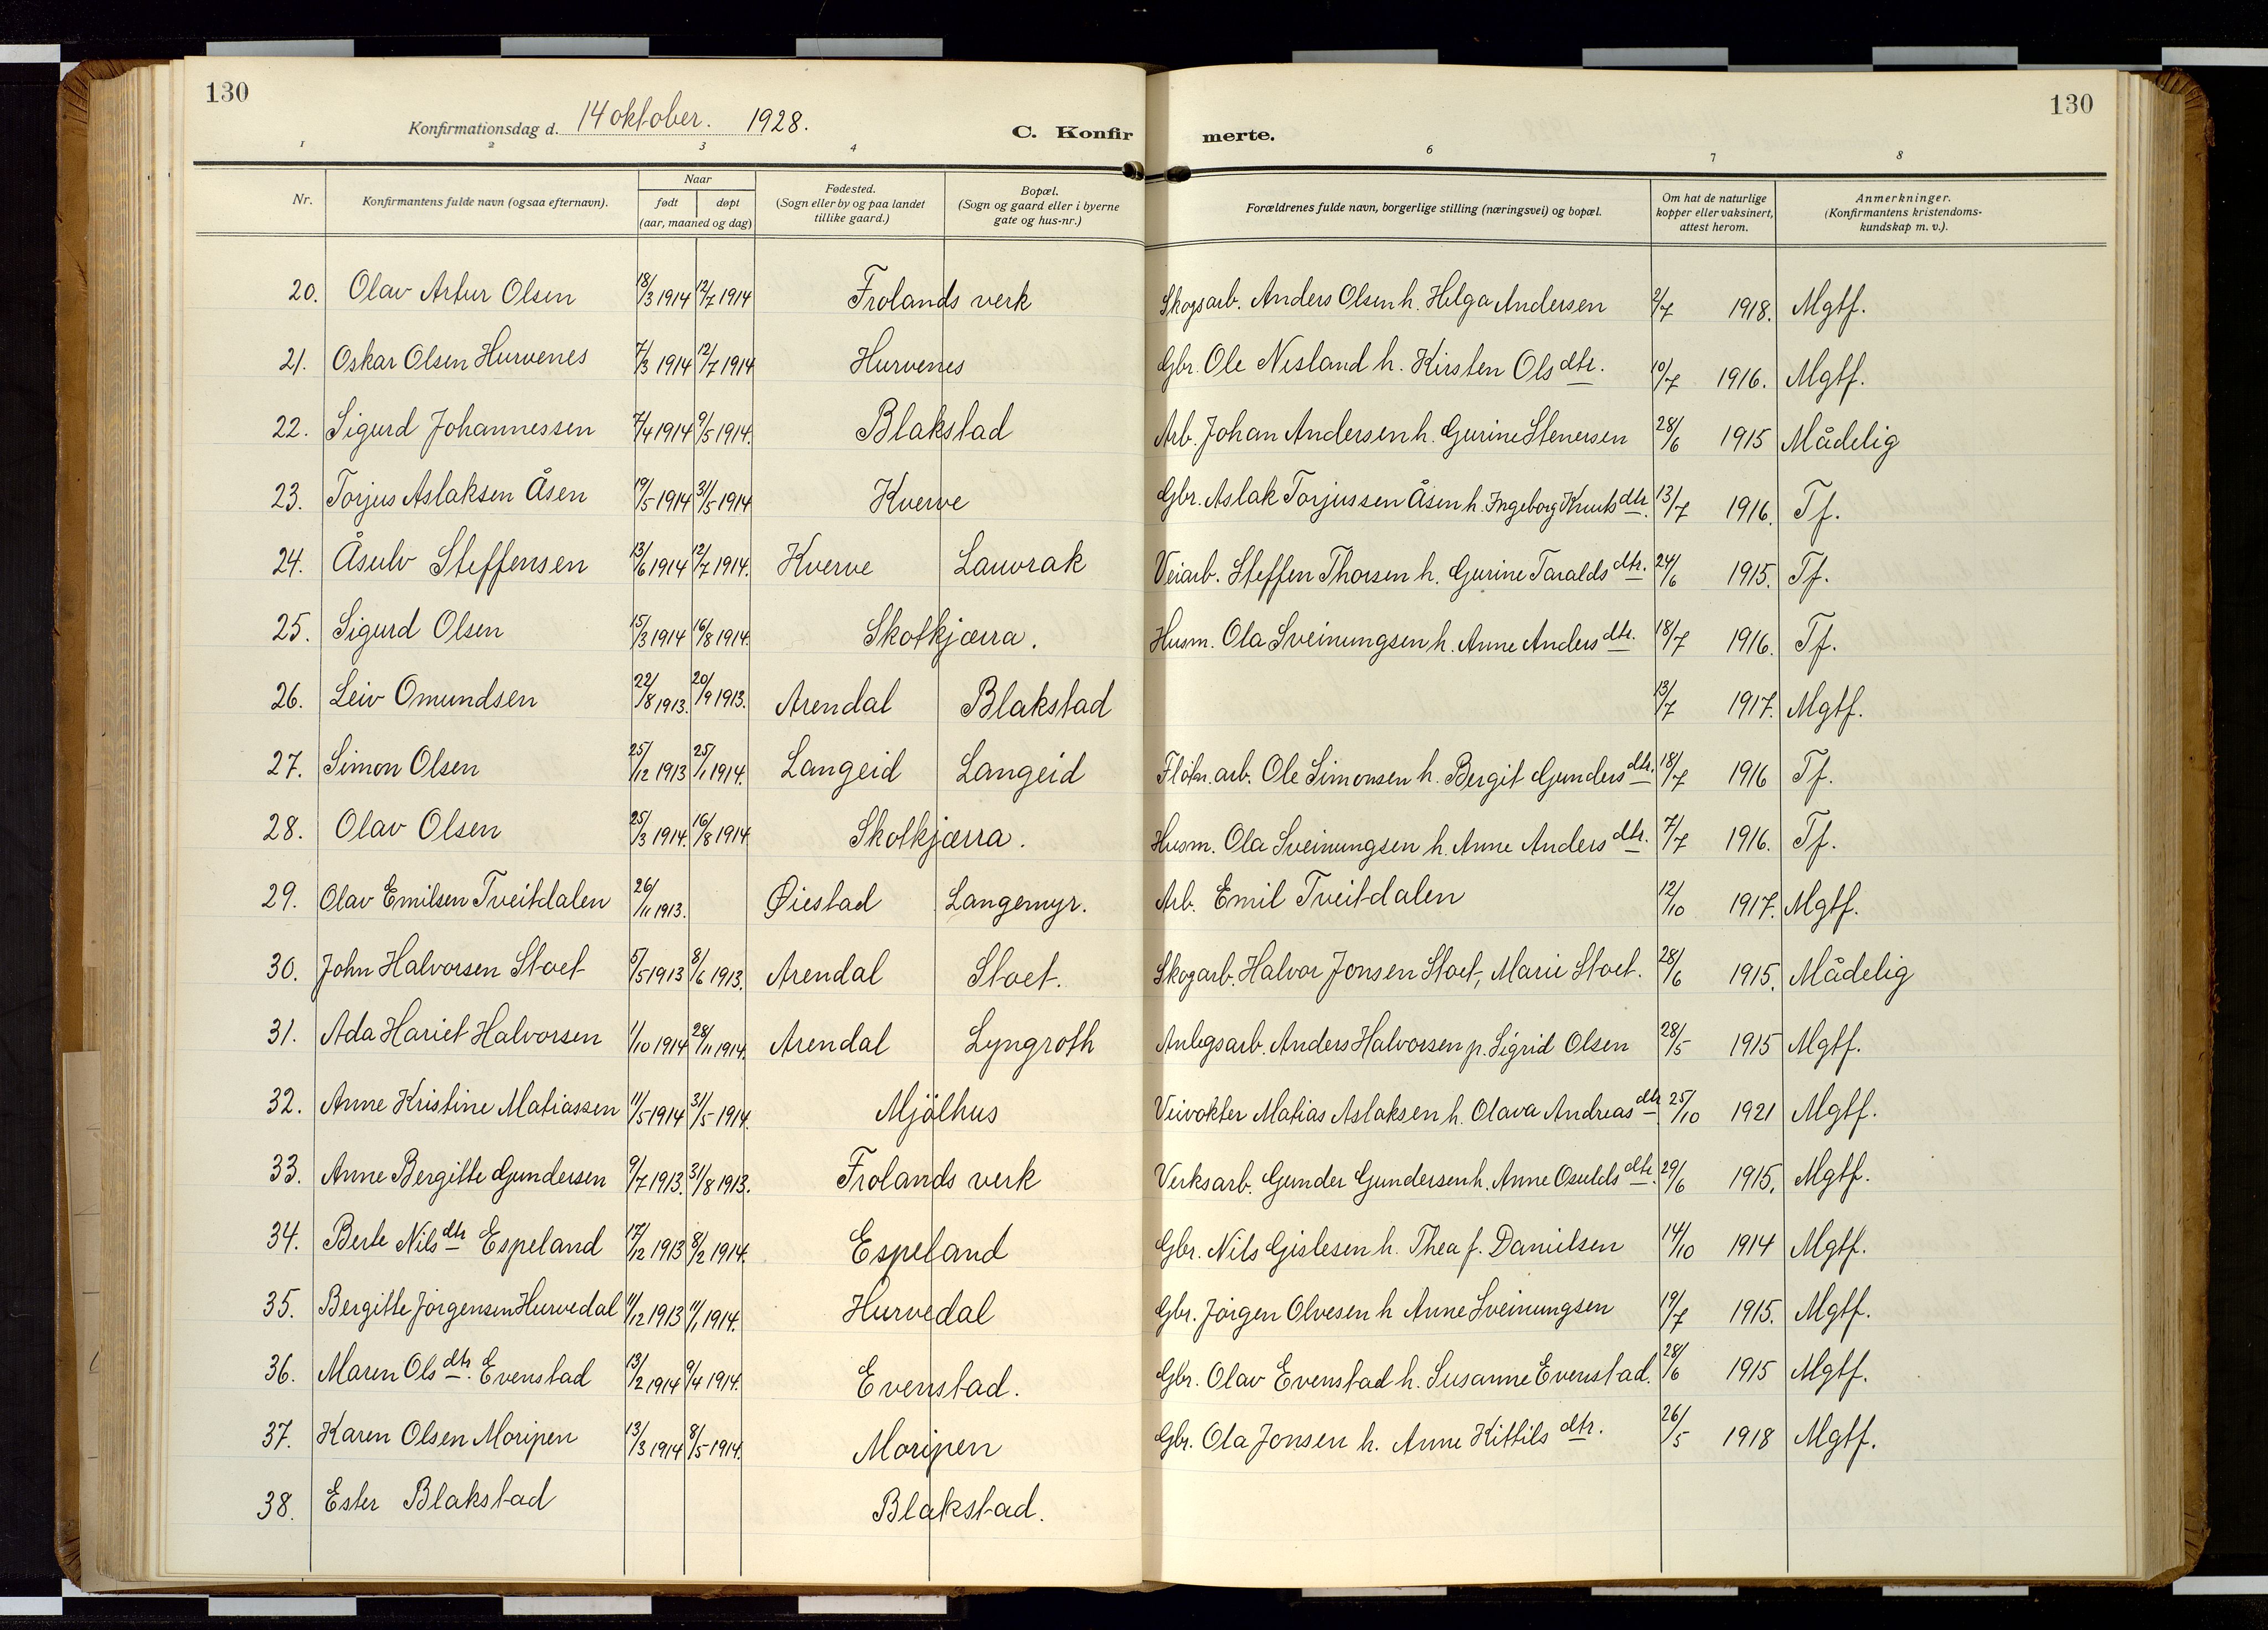 130
130
Konfirmationsdag d. 14 oktober. 1928.
C. Konfir merte.
1 2 3 4 6 7 8
Nr.
Konfirmantens fulde navn (ogsaa efternavn).
Naar
født døpt
(aar, maaned og dag)
Fødested.
(Sogn eller by og paa landet
tillike gaard.)
Bopæl.
(Sogn og gaard eller i byerne
gate og hus-nr.)
Forældrenes fulde navn, borgerlige stilling (næringsvei) og bopæl.
Om hat de naturlige
kopper eller vaksinert,
attest herom.
Anmerkninger.
(Konfirmantens kristendoms-
kundskap m. v.).
20. Olav Artur Olsen 18/3 1914 12/7 1914 Frolands verk Skogsarb. Anders Olsen h. Helga Andersen 2/7 1918. Mgtf.
21. Oskar Olsen Hurvenes 7/3 1914 12/7 1914 Hurvenes Gbr. Ole Nesland h. Kirsten Olsdtr. 10/7 1916. Mgtf.
22. Sigurd Johannessen 7/4 1914 9/5 1914. Blakstad Arb. Johan Andersen h. Gurine Stenersen 28/6 1915 Mådelig
23. Torjus Aslaksen Åsen 19/5 1914 31/5 1914 Kverve Gbr. Aslak Torjussen Åsen h. Ingeborg Knutsdtr. 13/7 1916. Tf.
24. Åsulv Steffensen 13/6 1914 12/7 1914. Kverve Lauvrak Veiarb. Steffen Thorsen h. Gurine Taraldsdtr. 24/6 1915. Tf.
25. Sigurd Olsen 15/3 1914 16/8 1914. Skotkjærra. Husm. Ola Sveinungsen h. Anne Andersdtr. 18/7 1916. Tf.
26. Leiv Omundsen 22/8 1913. 20/9 1913. Arendal Blakstad 13/7 1917. Mgtf.
27. Simon Olsen 25/12 1913 25/1 1914. Langeid Langeid Flötn. arb. Ole Simonsen h. Bergit Gundersdtr. 18/7 1916 Tf.
28. Olav Olsen 25/3 1914. 16/8 1914 Skotkjærra. Husm. Ola Sveinungsen h. Anne Andersdtr. 7/7 1916. Tf.
29. Olav Emilsen Tveitdalen 26/11 1913. Øiestad Langemyr. Arb. Emil Tveitdalen 12/10 1917. Mgtf.
30. John Halvorsen Stoet 5/5 1913 8/6 1913. Arendal Stoet. Skogarb. Halvor Jonsen Stoet, Marie Stoet. 28/6 1915. Mådelig
31. Ada Hariet Halvorsen 1/10 1914 28/11 1914. Arendal Lyngroth Anlegsarb. Anders Halvorsen p. Sigrid Olsen 28/5 1915 Mgtf.
32. Anne Kristine Matiassen 11/5 1914 31/5 1914. Mjölhus Veivokter Matias Aslaksen h. Olava Andreasdtr. 25/10 1921 Mgtf.
33. Anne Bergitte Gundersen 9/7 1913. 31/8 1913. Frolands verk Verksarb. Gunder Gundersen h. Anne Osuldsdtr. 29/6 1915. Mgtf.
34. Berte Nilsdtr Espeland 17/12 1913 8/2 1914. Espeland Gbr. Nils Gislesen h. Thea f. Danielsen 14/10 1914 Mgtf.
35. Bergitte Jörgensen Hurvedal 11/12 1913 11/1 1914. Hurvedal Gbr. Jörgen Olvesen h Anne Sveinungsen 19/7 1915. Mgtf.
36. Maren Olsdtr. Evenstad 13/2 1914 9/4 1914. Evenstad. Gbr. Olav Evenstad h. Susanne Evenstad. 28/6 1915 Mgtf.
37. Karen Olsen Moripen 13/3 1914 8/5 1914. Moripen Gbr. Ola Jonsen h. Anne Kittilsdtr. 26/5 1918 Mgtf.
38. Ester Blakstad Blakstad.